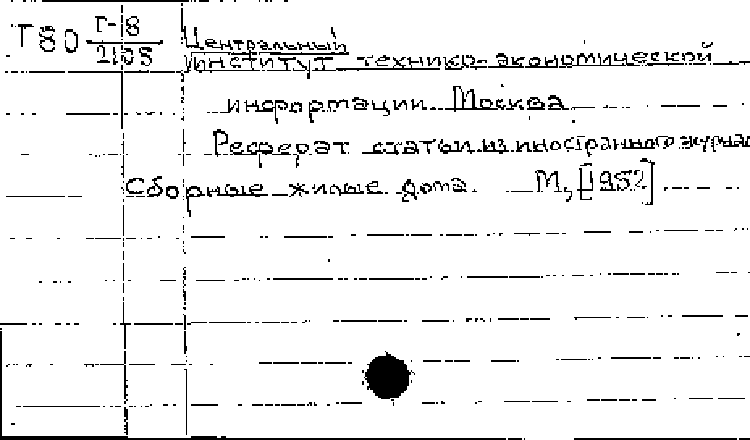 Т80 Г-8
2108
Центральный
институт технико-экономической
информации Москва
Реферат статьи из иностранного журнала
Сборные жилые дома М, [1952]